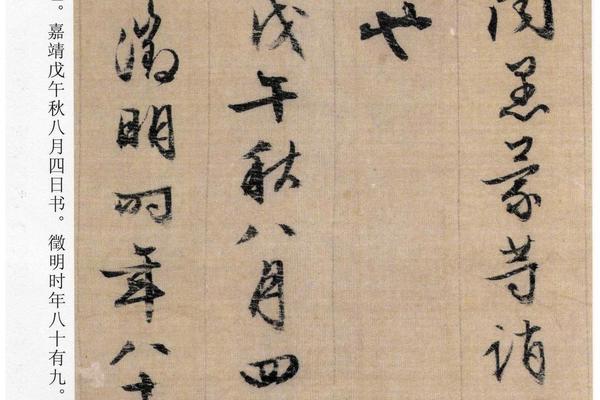 蒙
也
戊午秋八月四
徵明时年八十
。嘉靖戊午秋八月四日书。徵明时年八十有九。